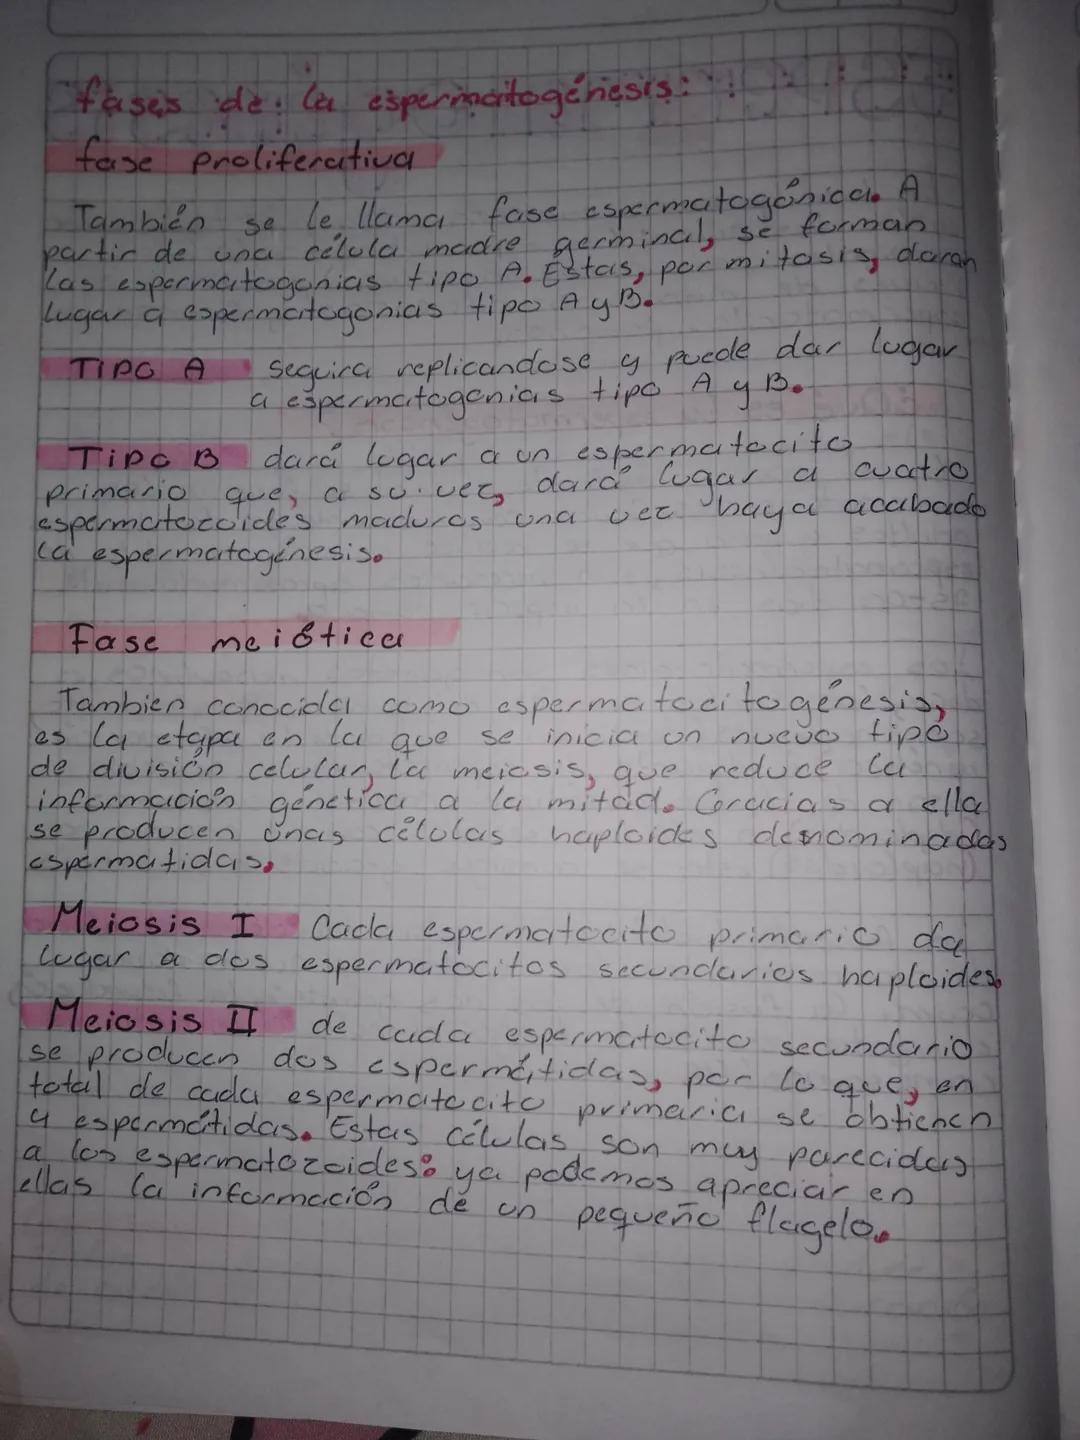 fases de la espermatogénesis:
fase proliferativa
También se le llama fase espermatogónica. A
partir de una célula madre germinal, se forman
las espermatogonias tipo A. Estas, por mitosis, daran
lugar a espermatogonias tipo A y B.
TIPO A seguira replicandose y puede dar lugar
a espermatogonias tipo A y B.
TIPO B dará lugar a un espermatocito
primario que, a su vez, dará lugar a cuatro
espermatozoides maduros una vez haya acabado
la espermatogénesis.
Fase meiótica
Tambien conocida como espermatocitogénesis,
es la etapa en la que se inicia un nuevo tipo
de división celular, la meiosis, que reduce la
información génetica a la mitad. Gracias a ella
se producen unas células haploides denominadas
espermatidas.
Meiosis I Cada espermatocito primario da
lugar a dos espermatocitos secundarios haploides.
Meiosis II de cada espermatocito secundario
se producen dos espermátidas, por lo que, en
total de cada espermatocito primario se obtienen
4 espermátidas. Estas células son muy parecidas
a los espermatozoides: ya podemos apreciar en
ellas la información de un pequeño flagelo.